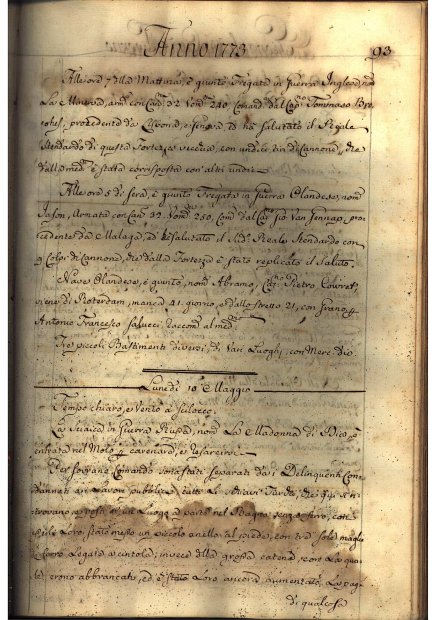 Anno 1773
93
Alle ore 7 della Mattina, è giunto Fregata in Guerra Inglese, nom.
La armª con Can. 32 Uom. 240 Comand. dal Capº Tommaso
procedente da ha salutato il Reale
Stendardo di questa Fortezza vecchia, con undici tiri di Cannone, che
dalla med.ª è stata corrisposta con altri undici.
Alle ore 5 di sera, è giunto Fregata in Guerra Olandese, nom.
Jason, Armata con Can. 32 Uom. 250, Com. dal Cap. Van
procedente da Malaga, ed salutato il Sud.º Reale Stendardo con
9 Colpi di Cannone, che dalla Fortezza è stato replicato il Saluto.
Nave Olandese, è giunto, nom. Abramo, Capº Pietro
viene di Roterdam, manca 41 giorno, e dallo stretto 21, con Grano, p
Antonio Francesco Raccom. al med.
Tre piccoli Bastimenti diversi, di Vari Luoghi, con Merc. die.
Lunedì 10 Maggio
Tempo chiaro, e Vento a Scilocco.
La in Guerra Russa, nom. La Madonna di
entrata nel Molo p carenarsi, e
Per Sovrano Comando sono stati separati da i Delinquenti Con-
dannati ai Lavori pubblici, tutti che qui si ri-
trovano, e posti in un Luogo a parte nel Bagno senza ferro, con
Loro stato messo un piccolo anello al piede, con una sola maglia
ferro Legata a cintola; invece della grossa catena, con La qua-
le erono abbrancati, ed è stato Loro ancora aumentato La paga
di qualcosa